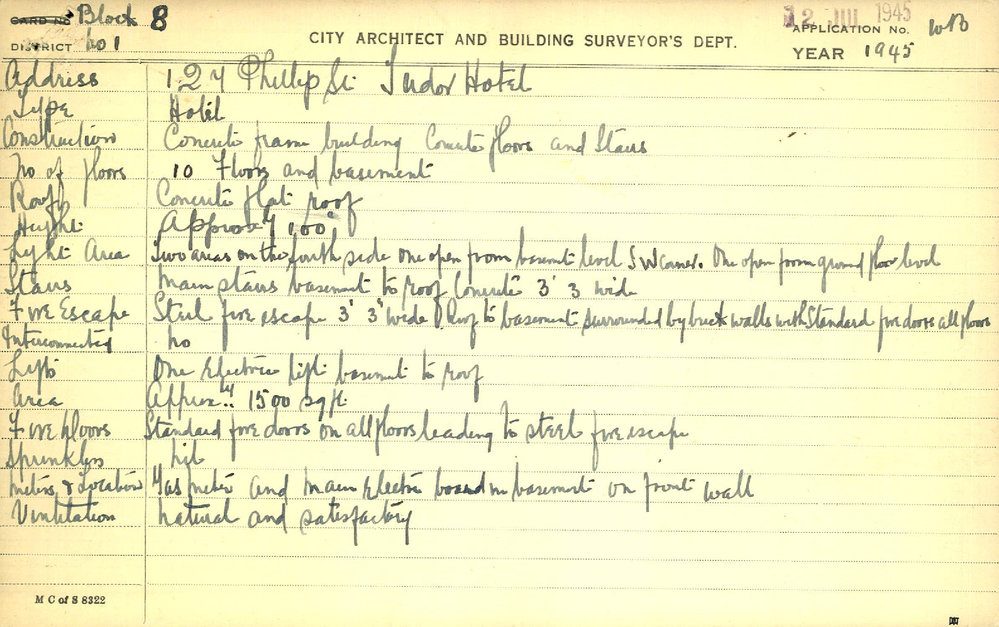 CARD No Block 8
12 JUL 1945
DISTRICT No 1
CITY ARCHITECT AND BUILDING SURVEYOR'S DEPT.
APPLICATION No. WB
YEAR 1945
Address 127 Phillip St. Tudor Hotel
Type Hotel
Construction Concrete frame building Concrete floors and Stairs
No of floors 10 Floors and basement
Roof Concrete flat roof
Height Approx 100'
Light Area Two areas on the south side one open from basement level SW corner. One open from ground floor level
Stairs Main stairs basement to roof Concrete 3' 3 wide
Fire Escape Steel fire escape 3' 3" wide Roof to basement surrounded by brick walls with Standard fire doors all floors
Interconnected No
Lifts One Electric lift basement to roof
Area Approx 1500 sq ft
Fire Doors Standard fire doors on all floors leading to steel fire escape
Sprinklers Nil
Meters & Location Gas meter and main electric board in basement on front wall
Ventilation Natural and satisfactory
M C of S 8322